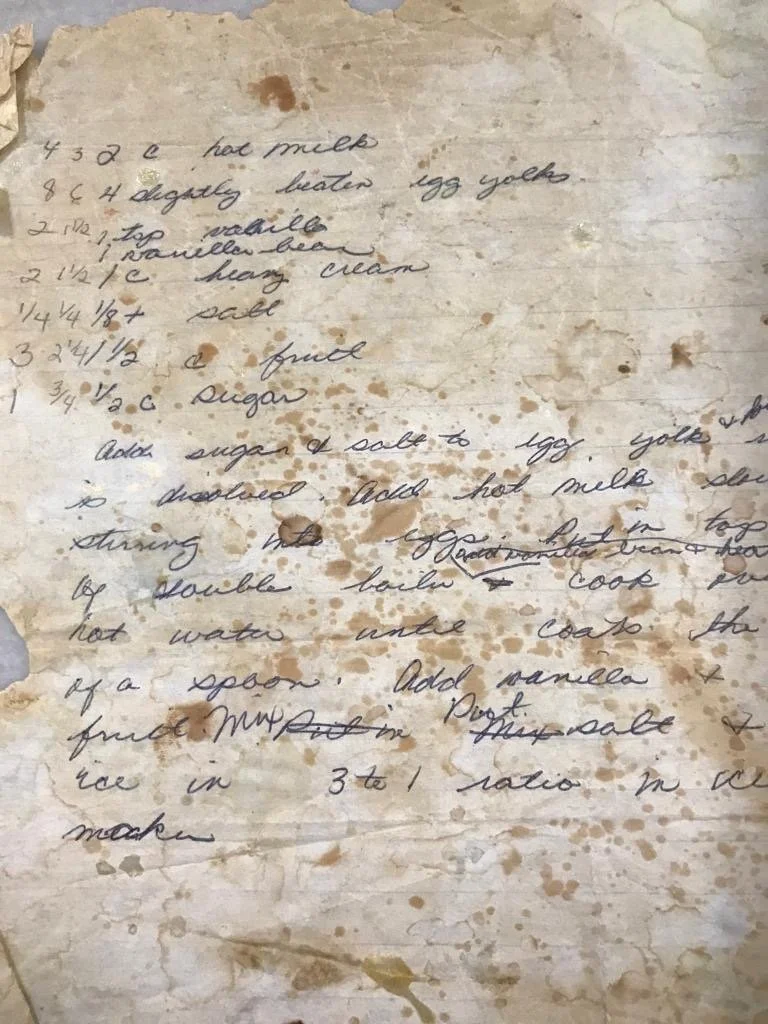 4 3 2 c hot milk
8 6 4 slightly beaten egg yolks
2 1 1/2 1 tsp vanilla
1 vanilla bean
2 1 1/2 1 c heavy cream
1/4 1/4 1/8 t salt
3 2 1/4 1 1/2 c fruit
1 3/4 1/2 c sugar
Add sugar & salt to egg yolk
is disolved. Add hot milk
stirring into eggs. Put in top
add vanilla bean +
of double boiler + cook
hot water until coats the
of a spoon. Add vanilla +
Put
fruit. Mix Put in Mix salt +
ice in 3 to 1 ratio in
maker